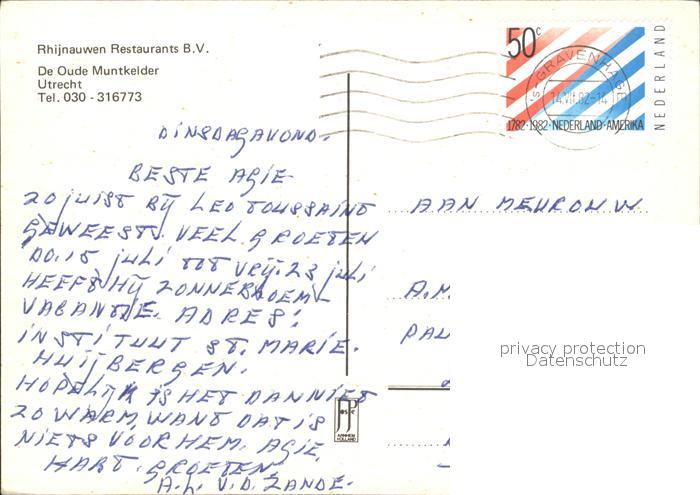 Rhijnauwen Restaurants B.V.
De Oude Muntkelder
Utrecht
Tel. 030 - 316773
50c
NEDERLAND
'S-GRAVENHAGE
14.VII.82-14
1782·1982·NEDERLAND·AMERIKA
DINSDAGAVOND.
BESTE AGIE
ZOJUIST BIJ LEO TOUSSAINT
GEWEEST. VEEL GROETEN
DO. 15 JULI TOT VRIJ. 23 JULI
HEEFT HIJ ZONNEBLOEM-
VACANTIE. ADRES:
INSTITUUT ST. MARIE.
HUIJBERGEN.
HOPELIJK IS HET DAN NIET
ZO WARM, WANT DAT IS
NIETS VOOR HEM. AGIE,
HART. GROETEN
A.L. V.D. ZANDE.
AAN MEVROUW
A.M
PAU
privacy protection
Datenschutz
ARNHEM
HOLLAND